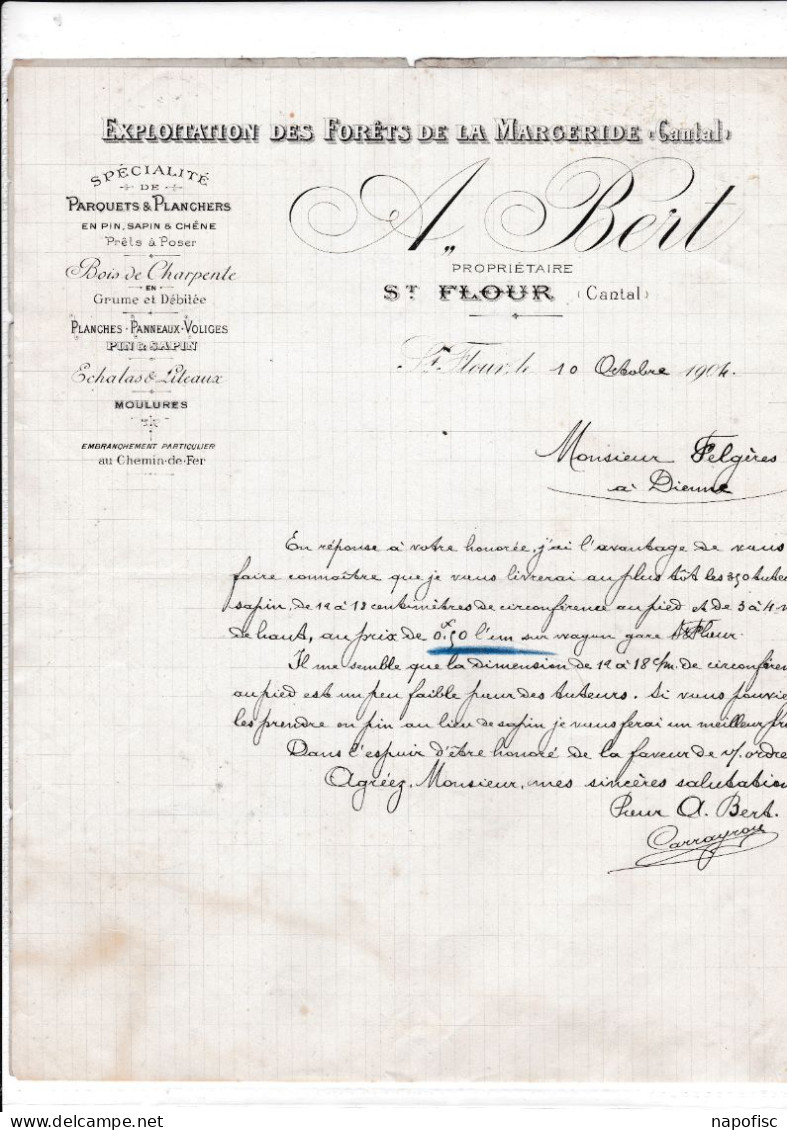 EXPLOITATION DES FORÊTS DE LA MARGERIDE (Cantal)
SPÉCIALITÉ
DE
PARQUETS & PLANCHERS
EN PIN, SAPIN & CHÊNE
Prêts à Poser
Bois de Charpente
EN
Grume et Débitée
PLANCHES - PANNEAUX - VOLIGES
PIN & SAPIN
Echalas & Liteaux
MOULURES
EMBRANCHEMENT PARTICULIER
au Chemin-de-Fer
A. Bert
PROPRIÉTAIRE
ST FLOUR (Cantal)
St Flour, le 10 Octobre 1904.
Monsieur Felgères
à Dienne
En réponse à votre honorée, j'ai l'avantage de vous
faire connaître que je vous livrerai au plus tôt les 350 tuteu
sapin, de 12 à 18 centimètres de circonférence au pied et de 3 à 4
de haut, au prix de 0f,50 l'un sur wagon gare St Flour.
Il me semble que la dimension de 12 à 18 c/m. de circonfére
au pied est un peu faible pour des tuteurs. Si vous pouvie
les prendre en pin au lieu de sapin je vous ferai un meilleur pri
Dans l'espoir d'être honoré de la faveur de v/. ordre
Agréez, Monsieur, mes sincères salutation
Pour A. Bert.
Carrayrou
napofisc